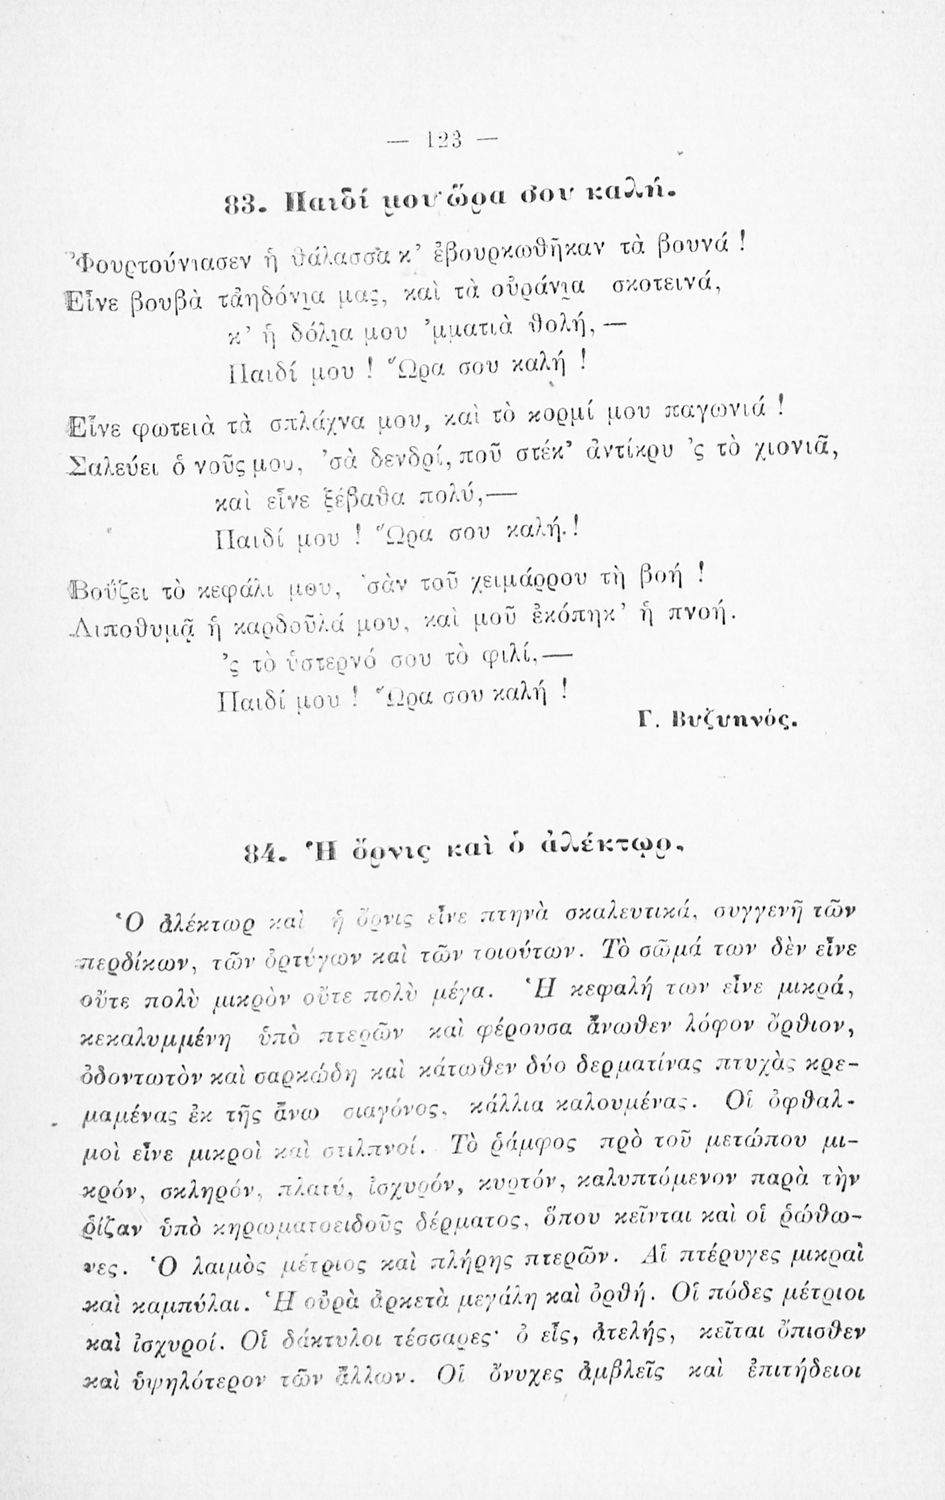 — 123 —
83. Παιδί μου ὥρα σου καλή.
Ἐφουρτούνιασεν ἡ θάλασσα κ’ ἐβουρκωθῆκαν τὰ βουνά !
Εἶνε βουβὰ τἀηδόνια μας, καὶ τὰ οὐράνια σκοτεινά,
κ’ ἡ δόλια μου ’μματιὰ θολή, —
Παιδί μου ! Ὥρα σου καλή !
Εἶνε φωτειὰ τὰ σπλάχνα μου, καὶ τὸ κορμί μου παγωνιά !
Σαλεύει ὁ νοῦς μου, ’σὰ δενδρί, ποῦ στέκ’ ἀντίκρυ ’ς τὸ χιονιᾶ,
καὶ εἶνε ξέβαθα πολύ,—
Παιδί μου ! Ὥρα σου καλή.!
Βοΰζει τὸ κεφάλι μου, ’σὰν τοῦ χειμάρρου τὴ βοή !
Λιποθυμᾷ ἡ καρδοῦλά μου, καὶ μοῦ ἐκόπηκ’ ἡ πνοή.
’ς τὸ ὑστερνό σου τὸ φιλί,—
Παιδί μου ! Ὥρα σου καλή !
Γ. Βυζυηνός.
84. Ἡ ὄρνις καὶ ὁ ἀλέκτωρ.
Ὁ ἀλέκτωρ καὶ ἡ ὄρνις εἶνε πτηνὰ σκαλευτικά, συγγενῆ τῶν
περδίκων, τῶν ὀρτύγων καὶ τῶν τοιούτων. Τὸ σῶμά των δὲν εἶνε
οὔτε πολὺ μικρὸν οὔτε πολὺ μέγα. Ἡ κεφαλή των εἶνε μικρά,
κεκαλυμμένη ὑπὸ πτερῶν καὶ φέρουσα ἄνωθεν λόφον ὄρθιον,
ὀδοντωτὸν καὶ σαρκώδη καὶ κάτωθεν δύο δερματίνας πτυχὰς κρε-
μαμένας ἐκ τῆς ἄνω σιαγόνος, κάλλια καλουμένας. Οἱ ὀφθαλ-
μοὶ εἶνε μικροὶ καὶ στιλπνοί. Τὸ ῥάμφος πρὸ τοῦ μετώπου μι-
κρόν, σκληρόν, πλατύ, ἰσχυρόν, κυρτόν, καλυπτόμενον παρὰ τὴν
ῥίζαν ὑπὸ κηρωματοειδοῦς δέρματος, ὅπου κεῖνται καὶ οἱ ῥώθω-
νες. Ὁ λαιμὸς μέτριος καὶ πλήρης πτερῶν. Αἱ πτέρυγες μικραὶ
καὶ καμπύλαι. Ἡ οὐρὰ ἀρκετὰ μεγάλη καὶ ὀρθή. Οἱ πόδες μέτριοι
καὶ ἰσχυροί. Οἱ δάκτυλοι τέσσαρες· ὁ εἷς, ἀτελής, κεῖται ὄπισθεν
καὶ ὑψηλότερον τῶν ἄλλων. Οἱ ὄνυχες ἀμβλεῖς καὶ ἐπιτήδειοι